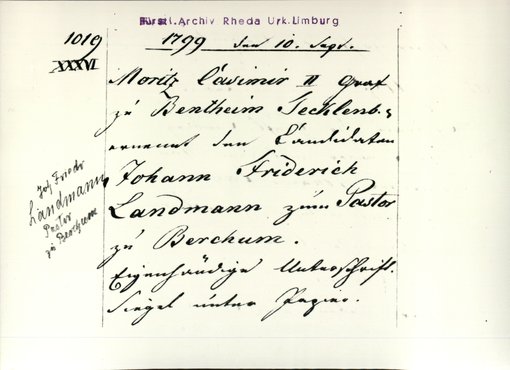 Fürstl. Archiv Rheda Urk. Limburg
1019
XXXVI
1799 den 10. Sept.
Moritz Casimir II Graf
zu Bentheim Tecklenb.
ernennt den Candidaten
Johann Friderich
Landmann zum Pastor
zu Berchum.
Eigenhändige Unterschrift.
Siegel unter Papier.
Joh Friedr
Landmann
Pastor
zu Berchum